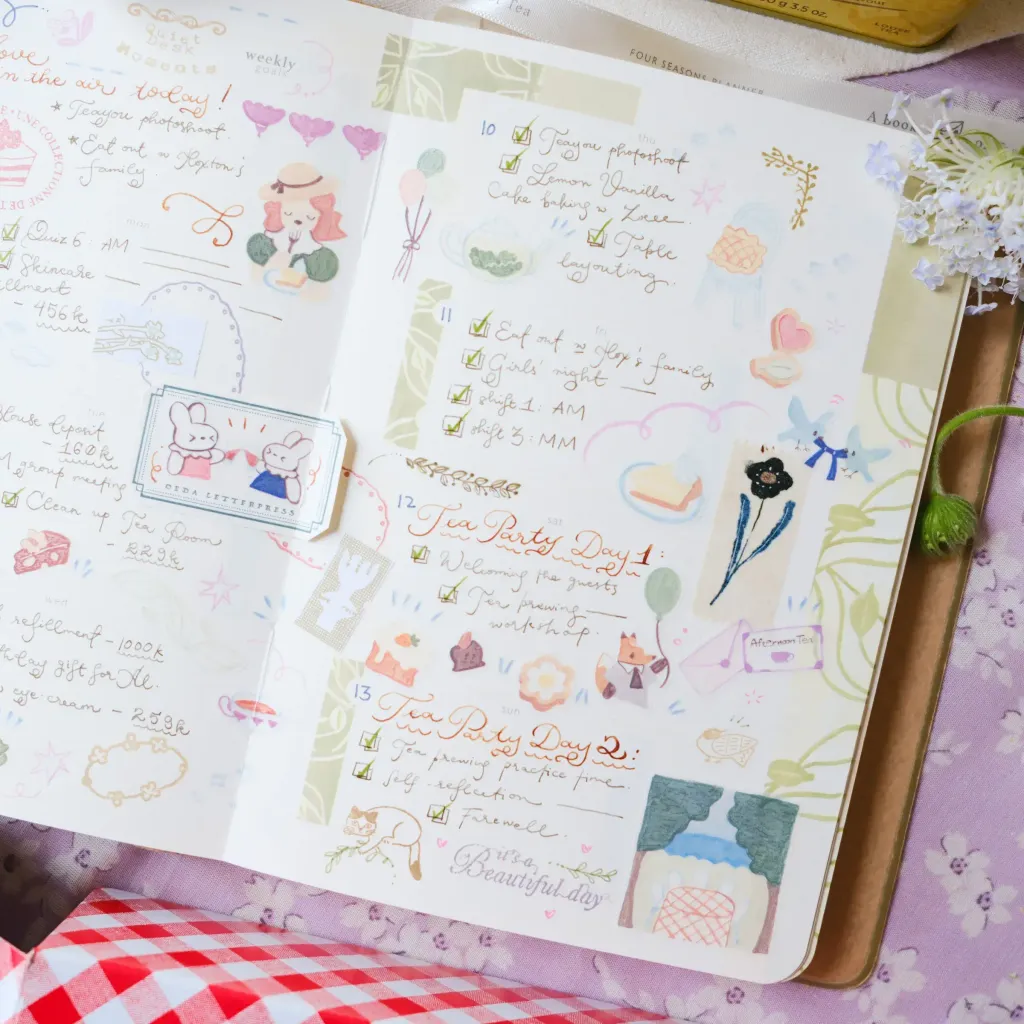 Tea
g 3.5 oz.
FOUR SEASONS PLANNER
A boo
quiet
desk
moments
weekly
goals
ove
n the air today!
* Teayou photoshoot.
* Eat out w Hoxton's
family.
UNE COLLECTIONNE DE
Quiz 6 : AM
Skincare
illment
- 456k
House deposit
- 160k
M group meeting
Clean up Tea Room
- 229k
wed
refillment - 1000k
day gift for Al.
eye cream - 259k
DEDA LETTERPRESS
thu
10
Teayou photoshoot
Lemon Vanilla
Cake baking w Zoee.
Table
layouting.
fri
11
Eat out w Hox's family.
Girls' night
shift 1 : AM
shift 3 : MM
sat
12
Tea Party Day 1:
Welcoming the guests
Tea prewing
workshop.
Afternoon Tea
sun
13
Tea Party Day 2:
Tea prewing practice time.
self-reflection
Farewell.
it's a
Beautiful day